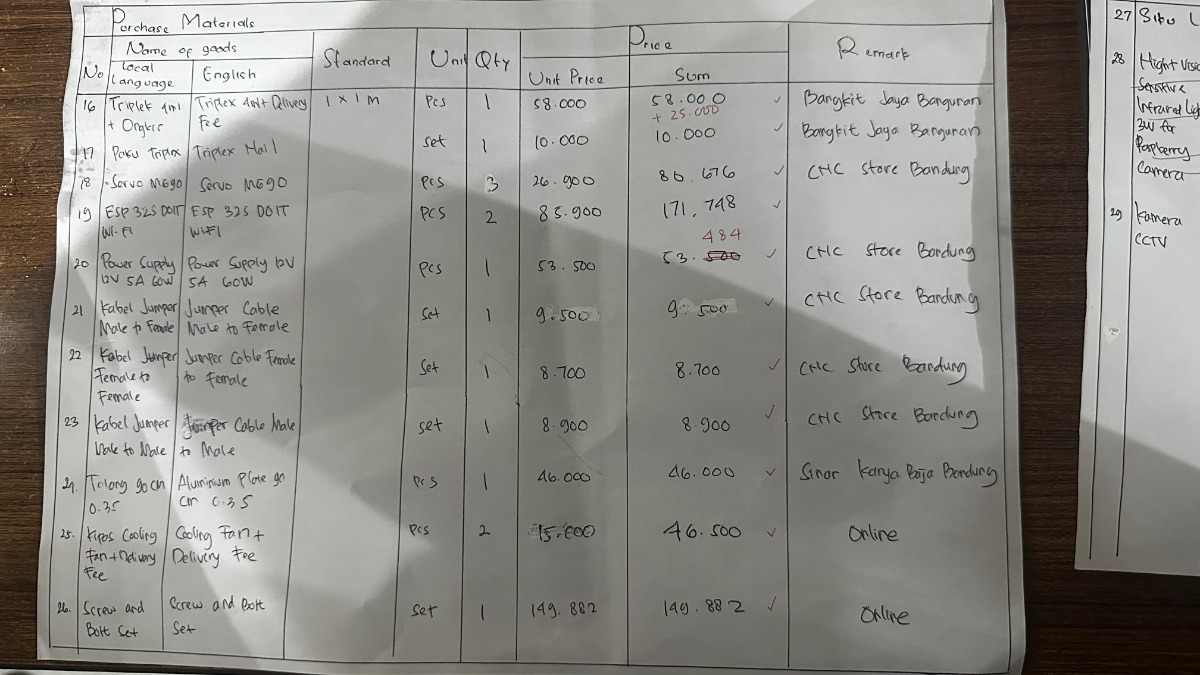 Purchase Materials
Name of goods
Standard
Unit
Qty
Price
Remark
No
Local Language
English
Unit Price
Sum
16 Triplek 4ml Triplex 4ml + Delivery 1 x 1 m Pcs 1 58.000 58.000 Bangkit Jaya Bangunan
+ Ongkir Fee + 25.000
17 Paku Triplex Triplex Nail set 1 10.000 10.000 Bangkit Jaya Bangunan
18 Servo MG90 Servo MG90 Pcs 3 26.900 80.676 CNC Store Bandung
19 ESP 32S DOIT ESP 32S DOIT Pcs 2 85.900 171.748
WI-FI WIFI
484
20 Power Supply Power Supply 12V Pcs 1 53.500 53.500 CNC Store Bandung
12V 5A 60W 5A 60W
21 Kabel Jumper Jumper Cable Set 1 9.500 9.500 CNC Store Bandung
Male to Female Male to Female
22 Kabel Jumper Jumper Cable Female Set 1 8.700 8.700 CNC Store Bandung
Female to to Female
Female
23 Kabel Jumper Jumper Cable Male set 1 8.900 8.900 CNC Store Bandung
Male to Male to Male
24. Talang 90 cm Aluminium Plate 90 Pcs 1 46.000 46.000 Sinar Karya Baja Bandung
0.35 cm 0.35
25. Kipas Cooling Cooling Fan + Pcs 2 15.000 46.500 Online
Fan + Delivery Delivery Fee
Fee
26. Screw and Screw and Bolt Set 1 149.882 149.882 Online
Bolt Set Set
27 Siku
28
Sensitive
Infrared
3W for
Raspberry
Camera
29 Kamera
CCTV